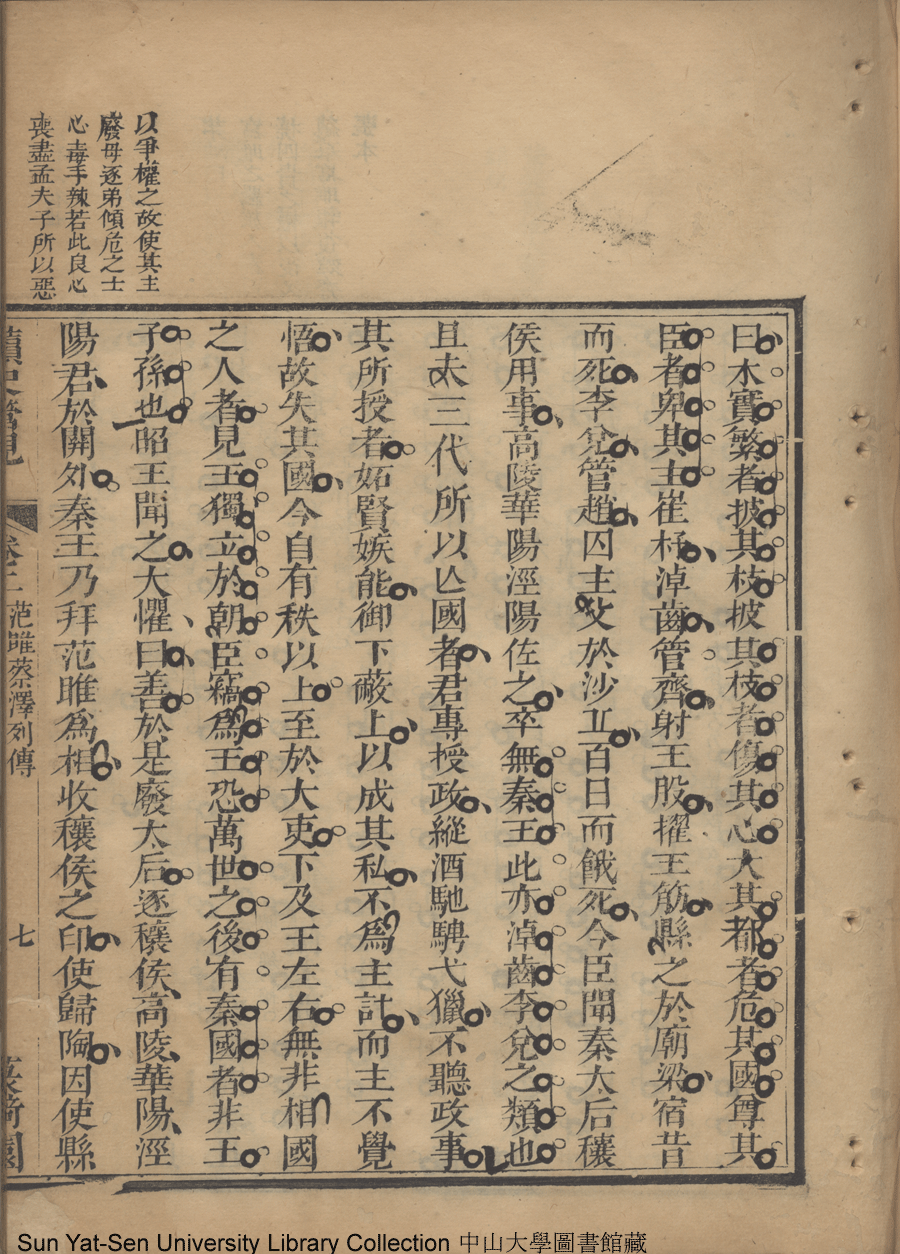 以爭權之故使其主
廢母逐弟傾危之士
心毒手辣若此良心
喪盡孟夫子所以惡
曰木實繁者披其枝披其枝者傷其心大其都者危其國尊其
臣者卑其主崔杼淖齒管齊射王股擢王筋縣之於廟梁宿昔
而死李兌管趙囚主父於沙丘百日而餓死今臣聞秦太后穰
侯用事高陵華陽涇陽佐之卒無秦王此亦淖齒李兌之類也
且夫三代所以亡國者君專授政縱酒馳騁弋獵不聽政事
其所授者妬賢嫉能御下蔽上以成其私不爲主計而主不覺
悟故失其國今自有秩以上至於大吏下及王左右無非相國
之人者見王獨立於朝臣竊爲王恐萬世之後有秦國者非王
子孫也昭王聞之大懼曰善於是廢太后逐穰侯高陵華陽涇
陽君於關外秦王乃拜范雎爲相收穰侯之印使歸陶因使縣
讀史管見 卷二 范雎蔡澤列傳 七
Sun Yat-Sen University Library Collection 中山大學圖書館藏